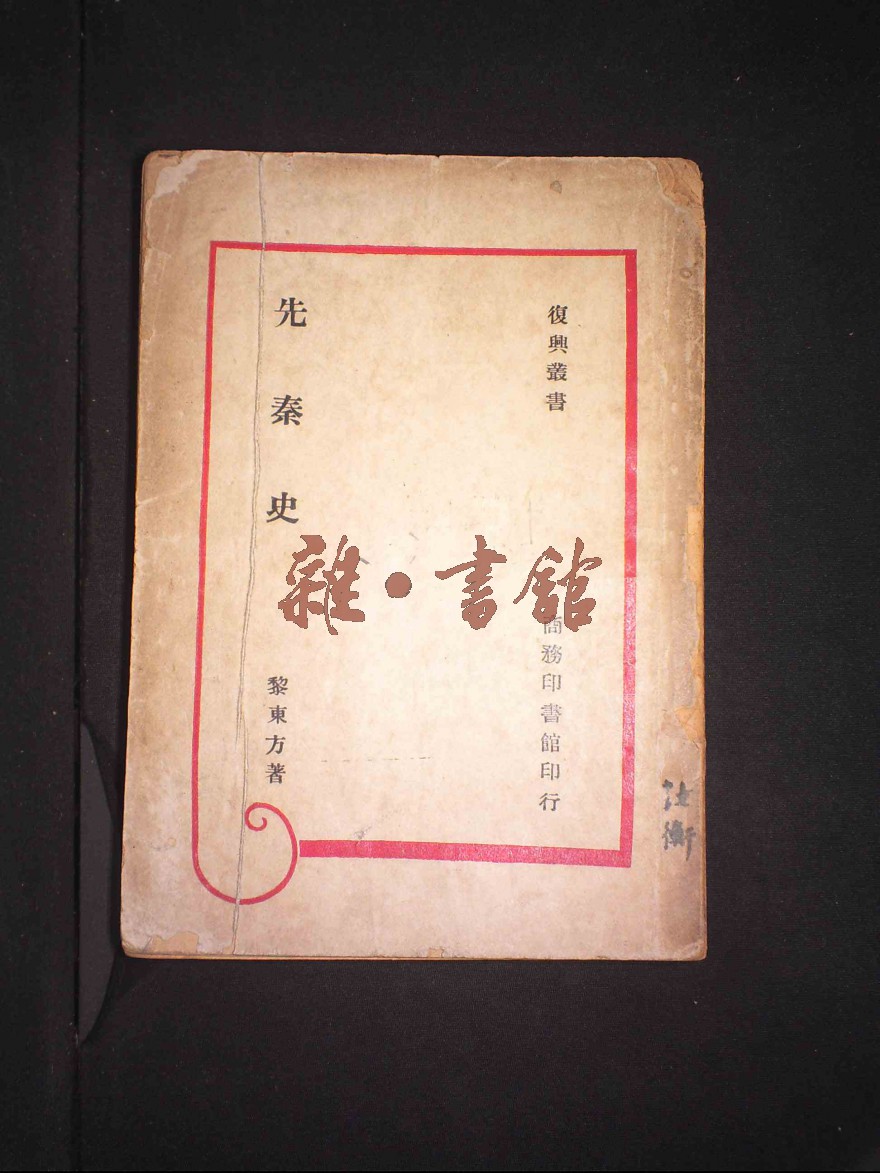 復興叢書
商務印書館印行
先秦史
黎東方著
雜·書館
汝衡